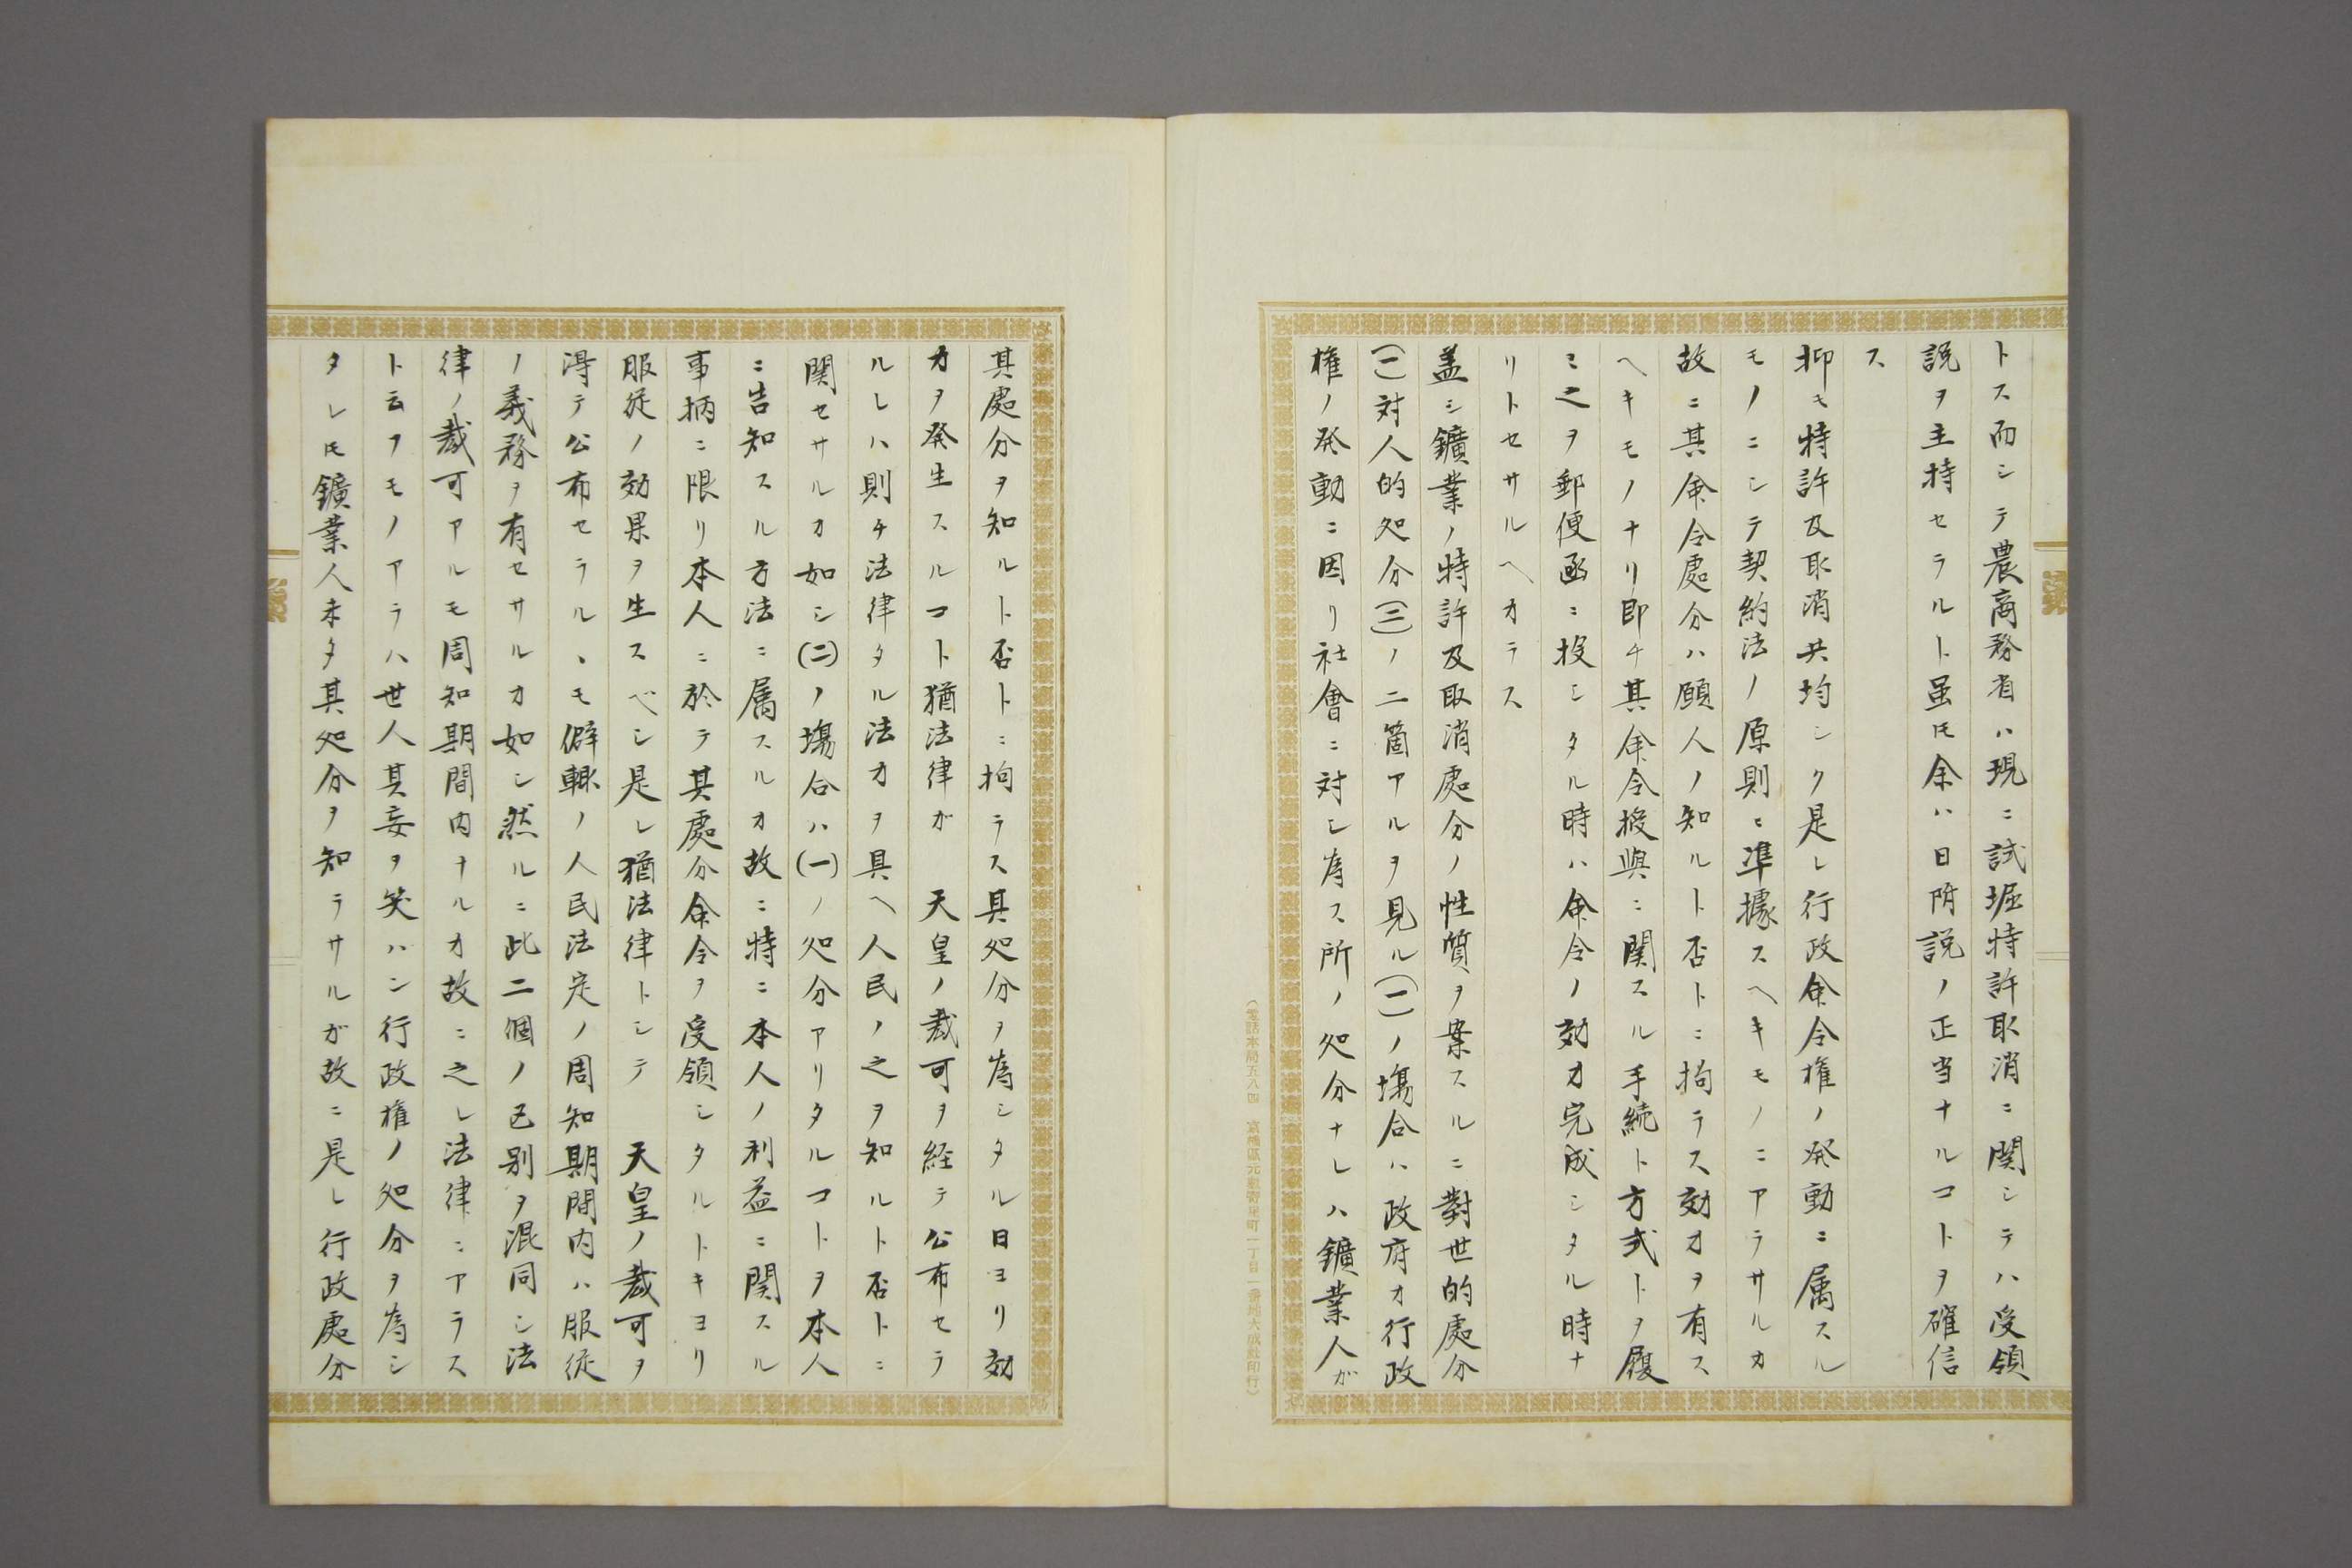 トス而シテ農商務省ハ現ニ試堀特許取消ニ関シテハ受領
説ヲ主持セラルト虽𪜈余ハ日附説ノ正当ナルコトヲ確信
ス
抑モ特許及取消共均シク是レ行政命令権ノ発動ニ属スル
モノニシテ契約法ノ原則ニ準據スヘキモノニアラサルカ
故ニ其命令處分ハ願人ノ知ルト否トニ拘ラス効力ヲ有ス
ヘキモノナリ即チ其命令授與ニ関スル手続ト方式トヲ履
ミ之ヲ郵便函ニ投シタル時ハ命令ノ効力完成シタル時ナ
リトセサルヘカラス
盖シ鑛業ノ特許及取消處分ノ性質ヲ案スルニ對世的處分
(一)対人的処分(二)ノ二箇アルヲ見ル(一)ノ塲合ハ政府カ行政
権ノ発動ニ因リ社會ニ対シ為ス所ノ処分ナレハ鑛業人が
其處分ヲ知ルト否トニ拘ラス其処分ヲ為シタル日ヨリ効
力ヲ発生スルコト猶法律が　天皇ノ裁可ヲ経テ公布セラ
ルレハ則チ法律タル法力ヲ具ヘ人民ノ之ヲ知ルト否トニ
関セサルカ如シ(二)ノ塲合ハ(一)ノ処分アリタルコトヲ本人
ニ告知スル方法ニ属スルカ故ニ特ニ本人ノ利益ニ関スル
事柄ニ限リ本人ニ於テ其處分命令ヲ受領シタルトキヨリ
服従ノ効果ヲ生スベシ是レ猶法律トシテ　天皇ノ裁可ヲ
得テ公布セラルヽモ僻陬ノ人民法定ノ周知期間内ハ服従
ノ義務ヲ有セサルカ如シ然ルニ此二個ノ区別ヲ混同シ法
律ノ裁可アルモ周知期間内ナルカ故ニ之レ法律ニアラス
ト云フモノアラハ世人其妄ヲ笑ハン行政権ノ処分ヲ為シ
タレ𪜈鑛業人未タ其処分ヲ知ラサルガ故ニ是レ行政處分